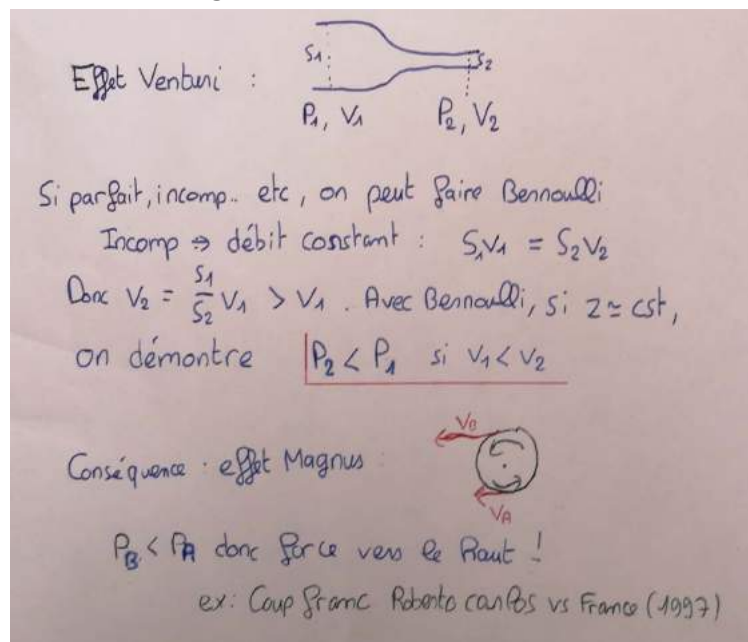 S1
S2
Effet Venturi :
P1, V1 P2, V2
Si parfait, incomp.. etc, on peut faire Bernoulli
Incomp ⇒ débit constant : S1V1 = S2V2
Donc V2 = S1/S2 V1 > V1. Avec Bernoulli, si z ≃ cst,
on démontre P2 < P1 si V1 < V2
VB
Conséquence : effet Magnus :
VA
PB < PA donc force vers le haut !
ex: Coup franc Roberto carlos vs France (1997)